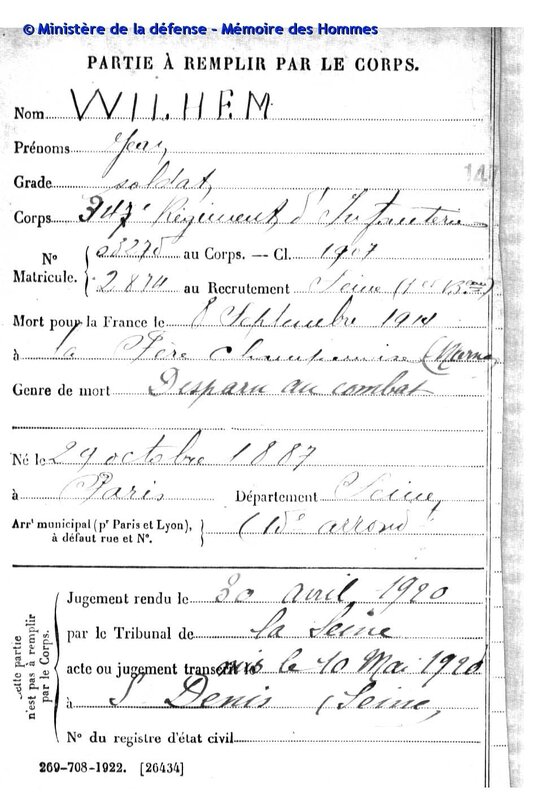 © Ministère de la défense - Mémoire des Hommes
PARTIE À REMPLIR PAR LE CORPS.
Nom WILHEM
Prénoms Jean
Grade soldat
147
Corps 347e Régiment d'Infanterie
Nº Matricule. { 03275 au Corps. — Cl. 1907
2874 au Recrutement Seine (1er Bau)
Mort pour la France le 8 Septembre 1914
à la Fère Champenoise (Marne
Genre de mort Disparu au combat
Né le 29 octobre 1887
à Paris Département Seine
Arrt municipal (pr Paris et Lyon), à défaut rue et Nº. } arrond
Cette partie n'est pas à remplir par le Corps.
Jugement rendu le 30 avril 1920
par le Tribunal de la Seine
acte ou jugement transcrit le 10 Mai 1920
à St Denis (Seine)
Nº du registre d'état civil
269-708-1922. [26434]